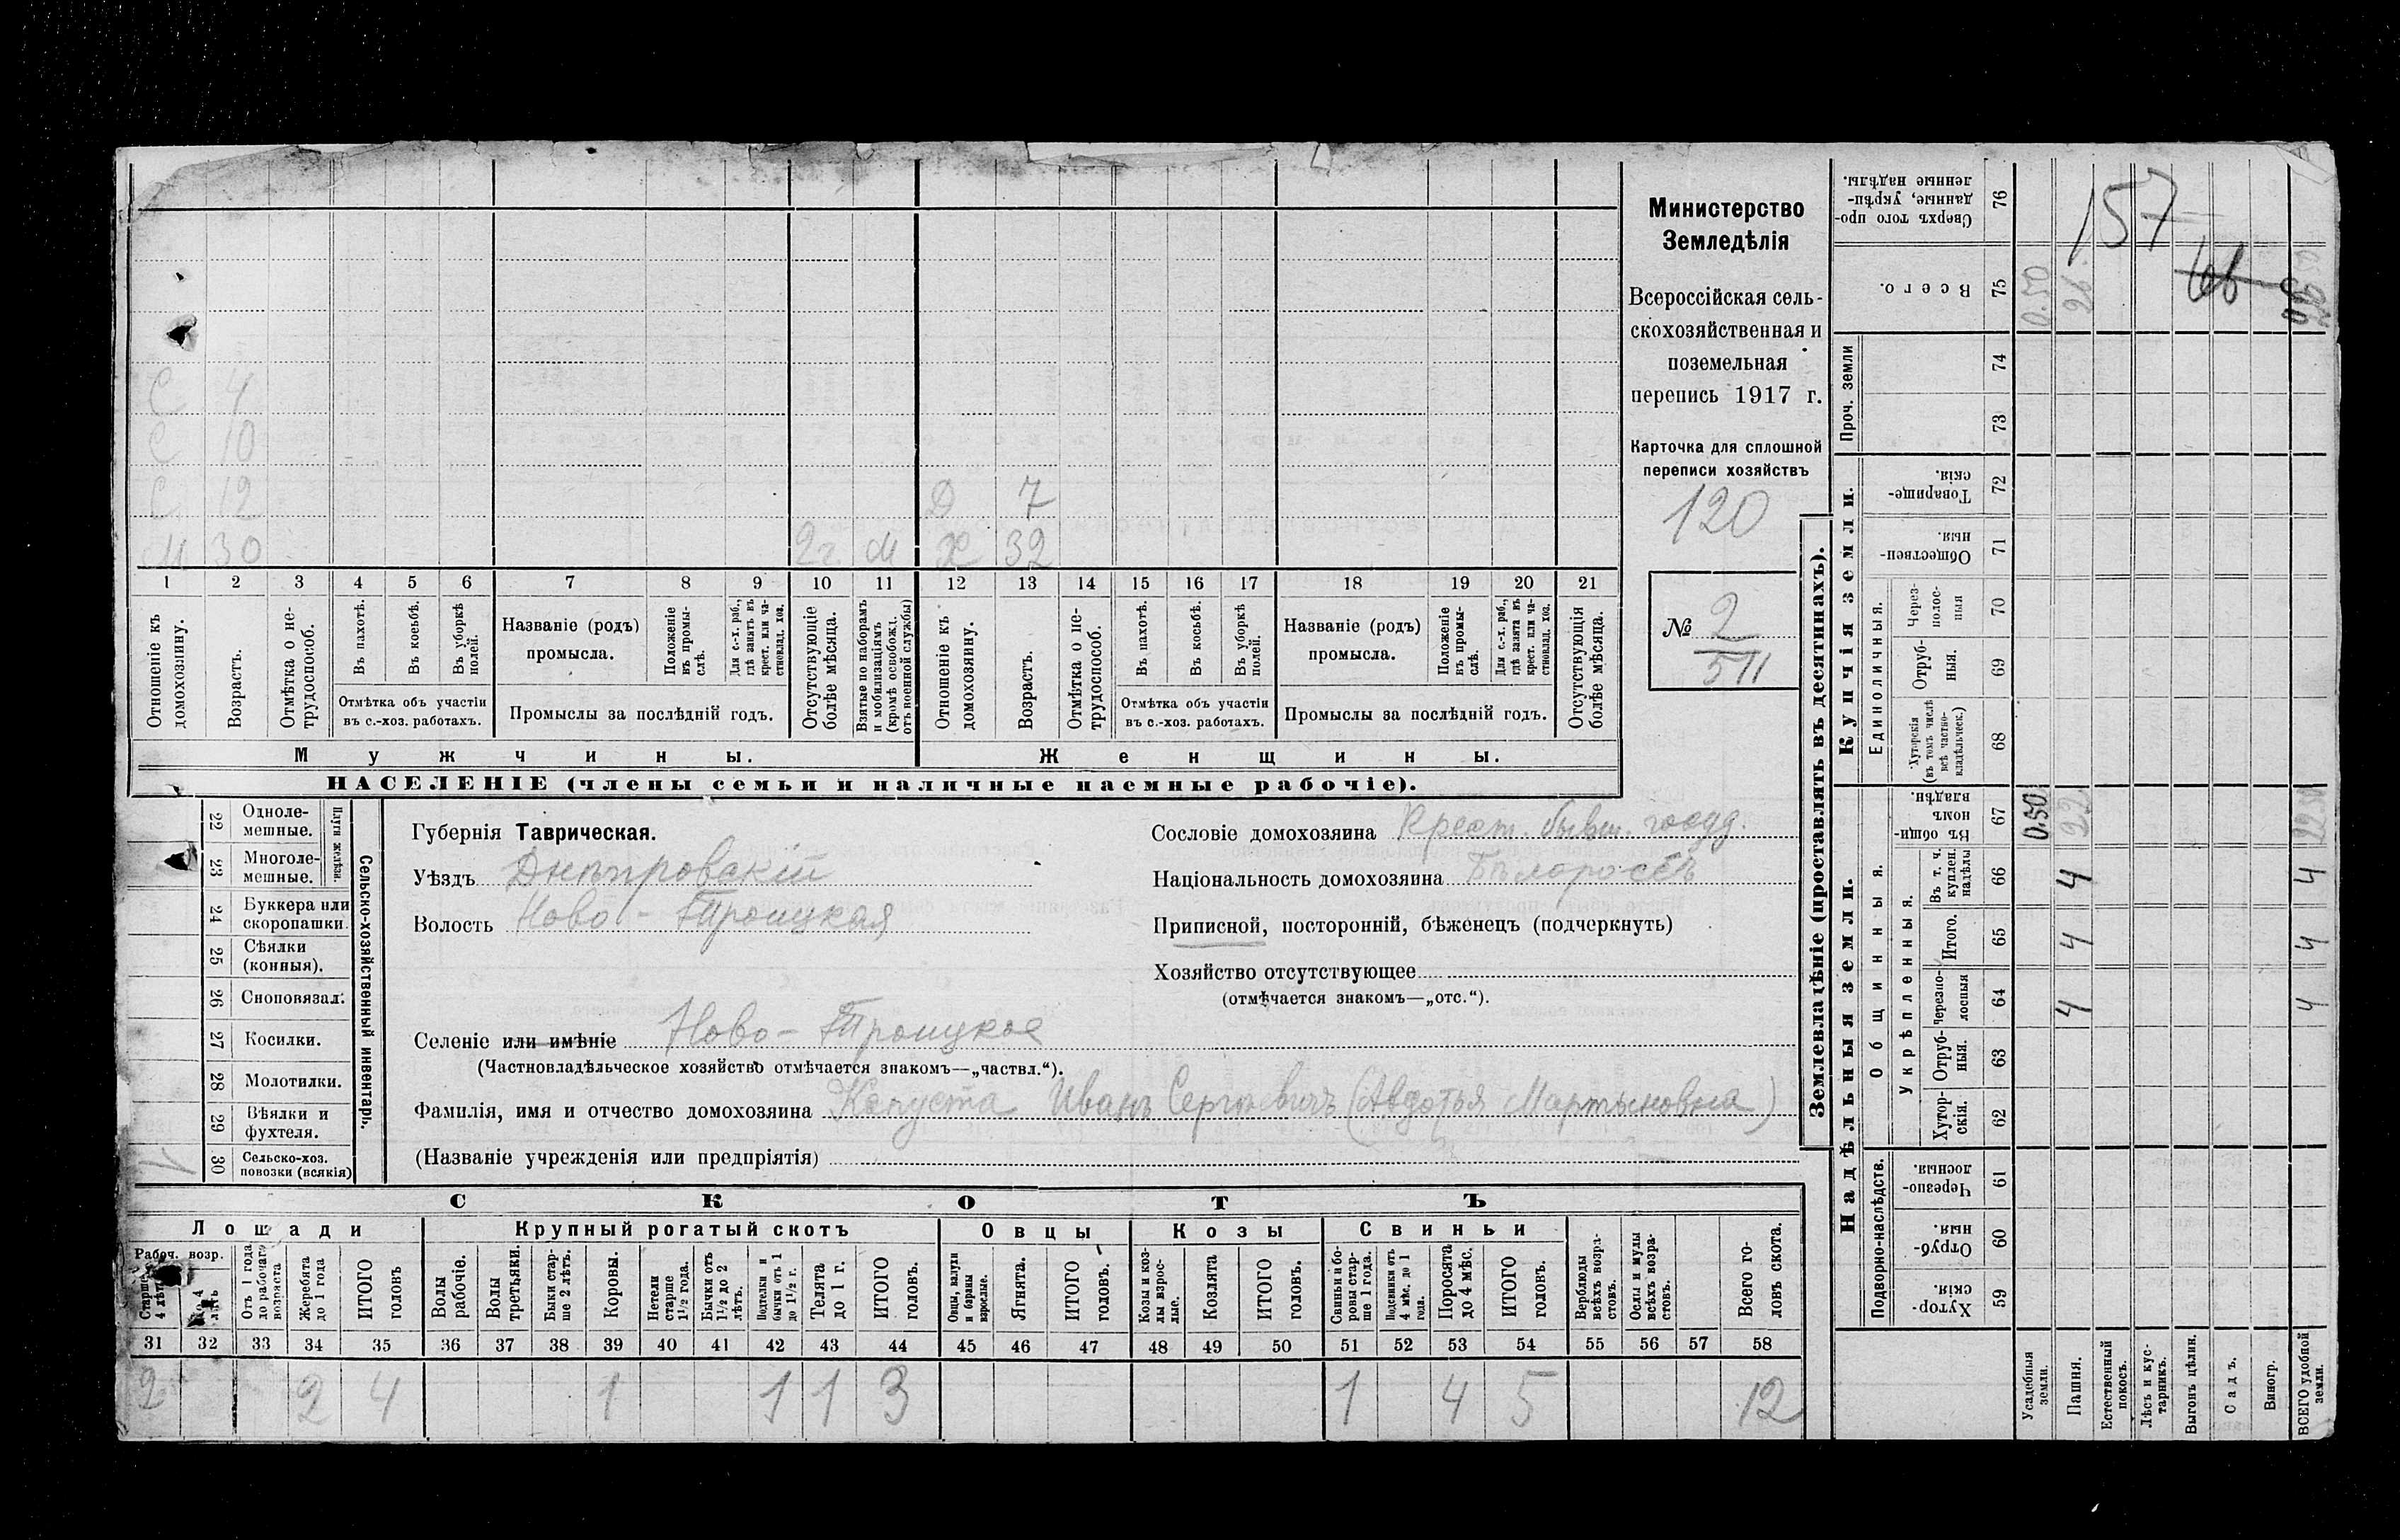 С 4
С 10
С 12 Д 7
М 30 2 г. М Х 32
1 2 3 4 5 6 7 8 9 10 11 12 13 14 15 16 17 18 19 20 21
Отношеніе къ домохозяину.
Возрастъ.
Отмѣтка о не-трудоспособ.
Въ пахотѣ.
Въ косьбѣ.
Въ уборкѣ полей.
Отмѣтка объ участіи
въ с.-хоз. работахъ.
Названіе (родъ)
промысла.
Положеніе въ промы-слѣ.
Для с.-х. раб., гдѣ занятъ въ крест. или ча-стновлад. хоз.
Промыслы за послѣдній годъ.
Отсутствующіе болѣе мѣсяца.
Взятые по наборамъ и мобилизаціямъ (кромѣ освобожд. отъ военной службы)
Отношеніе къ домохозяину.
Возрастъ.
Отмѣтка о не-трудоспособ.
Въ пахотѣ.
Въ косьбѣ.
Въ уборкѣ полей.
Отмѣтка объ участіи
въ с.-хоз. работахъ.
Названіе (родъ)
промысла.
Положеніе въ промы-слѣ.
Для с.-х. раб., гдѣ занята въ крест. или ча-стновлад. хоз.
Промыслы за послѣдній годъ.
Отсутствующія болѣе мѣсяца.
Мужчины. Женщины.
НАСЕЛЕНІЕ (члены семьи и наличные наемные рабочіе).
Министерство
Земледѣлія
Всероссійская сель-
скохозяйственная и
поземельная
перепись 1917 г.
Карточка для сплошной
переписи хозяйствъ
120
№ 2
511
Сельско-хозяйственный инвентарь.
Плуги желѣзн.
22 Одноле-мешные.
23 Многоле-мешные.
24 Буккера или скоропашки.
25 Сѣялки (конныя).
26 Сноповязал.
27 Косилки.
28 Молотилки.
29 Вѣялки и фухтеля.
30 Сельско-хоз. повозки (всякія)
Губернія Таврическая.
Уѣздъ Днѣпровскій
Волость Ново-Троицкая
Сословіе домохозяина Крест. бывш. госуд.
Національность домохозяина Бѣлороссъ
Приписной, посторонній, бѣженецъ (подчеркнуть)
Хозяйство отсутствующее
(отмѣчается знакомъ—„отс.“).
Селеніе или имѣніе Ново-Троицкое
(Частновладѣльческое хозяйство отмѣчается знакомъ—„частвл.“).
Фамилія, имя и отчество домохозяина Капуста Иванъ Сергѣевичъ (Авдотья Мартыновна)
(Названіе учрежденія или предпріятія)
СКОТЪ
Лошади Крупный рогатый скотъ Овцы Козы Свиньи
Рабоч. возр.
Старше 4 лѣтъ
До 4 лѣтъ
Отъ 1 года до рабочаго возраста
Жеребята до 1 года
ИТОГО головъ
Волы рабочіе.
Волы третьяки.
Быки стар-ше 2 лѣтъ.
Коровы.
Нетели старше 1½ года.
Бычки отъ 1½ до 2 лѣтъ.
Подтелки и бычки отъ 1 до 1½ г.
Телята до 1 г.
ИТОГО головъ.
Овцы, валухи и бараны взрослые.
Ягнята.
ИТОГО головъ.
Козы и коз-лы взрос-лые.
Козлята
ИТОГО головъ.
Свиньи и бо-ровы стар-ше 1 года.
Подсвинки отъ 4 мѣс. до 1 года.
Поросята до 4 мѣс.
ИТОГО головъ.
Верблюды всѣхъ возра-стовъ.
Ослы и мулы всѣхъ возра-стовъ.
Всего го-ловъ скота.
31 32 33 34 35 36 37 38 39 40 41 42 43 44 45 46 47 48 49 50 51 52 53 54 55 56 57 58
2 2 4 1 1 1 3 1 4 5 12
Землевладѣніе (проставлять въ десятинахъ).
Сверхъ того про-данные, укрѣп-ленные надѣлы. 76
157
Всего. 75 0.50 26
Проч. земли
74
73
Купчія земли.
Товарище-скія. 72
Обществен-ныя. 71
Единоличныя.
Через-полос-ныя 70
Отруб-ныя. 69
Хуторскія (въ томъ числѣ всѣ частно-владѣльческ.) 68
Надѣльныя земли.
Общинныя.
Въ общи-номъ владѣн. 67 0.50 22 22.50
Укрѣпленныя.
Въ т. ч. куплен. надѣлы 66 4 4
Итого. 65 4 4
Черезпо-лосныя 64 4 4
Отруб-ныя. 63
Хутор-скія. 62
Подворно-наслѣдств.
Черезпо-лосныя. 61
Отруб-ныя. 60
Хутор-скія. 59
Усадебныя земли.
Пашня.
Естественный покосъ.
Лѣсъ и кус-тарникъ.
Выгонъ цѣлин.
Садъ.
Виногр.
ВСЕГО удобной земли.